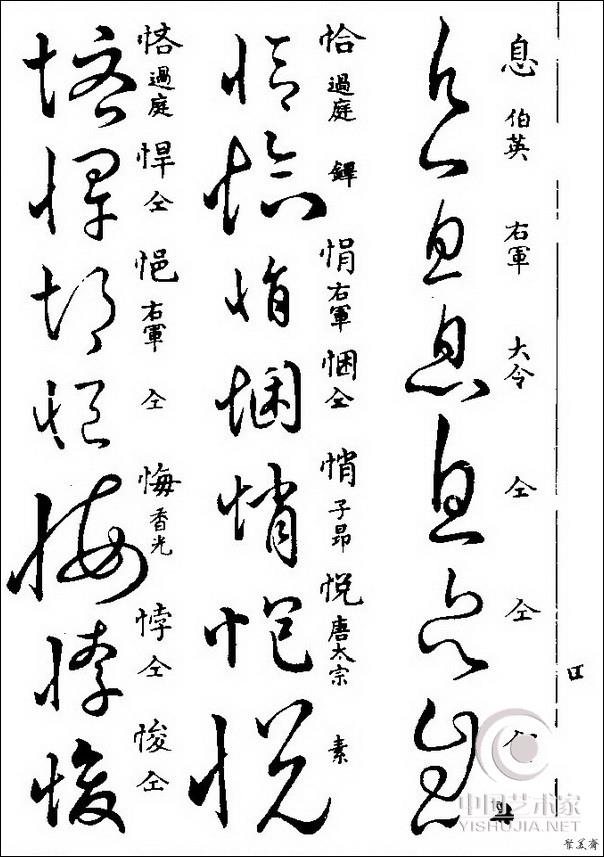 息 伯英 右軍 大令 仝 仝 仝
恰 過庭 鐸 悁 右軍 悃 仝 悄 子昂 悦 唐太宗 素
悋 過庭 悍 仝 悒 右軍 仝 悔 香光 悖 仝 悛 仝
中国艺术家
YISHUJIA.NET